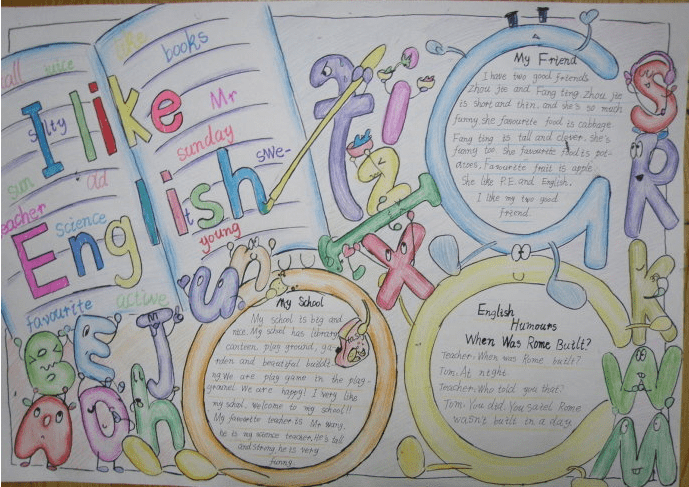 I like
English
like
books
tall
juice
salty
Mr
sunday
swe-
sun
ad
teacher
science
young
favourite
active
My Friend
I have two good friends
Zhou jie and Fang ting Zhou jie
is short and thin. and she's so much
funny she favourite food is cabbage.
Fang ting is tall and clever. she's
funny too. She favourite food is pot-
atoes, Favourite fruit is apple.
She like P.E. and English.
I like my two good
friend.
My School
My school is big and
nice. My school has library
canteen play ground, ga-
rden and beautiful buildi
ng. We are play game in the play-
ground. We are happy! I very like
my school. welcome to my school!!
My favourite teacher is Mr Wang,
he is my science teacher. He's tall
and strong, he is very
funny.
English
Humours
When Was Rome Built?
Teacher: When was Rome built?
Tom: At night
Teacher: Who told you that?
Tom: You did. You saied Rome
wasn't built in a day.
t
i
z
I
X
G
S
R
k
W
M
u
n
B
E
J
A
O
h